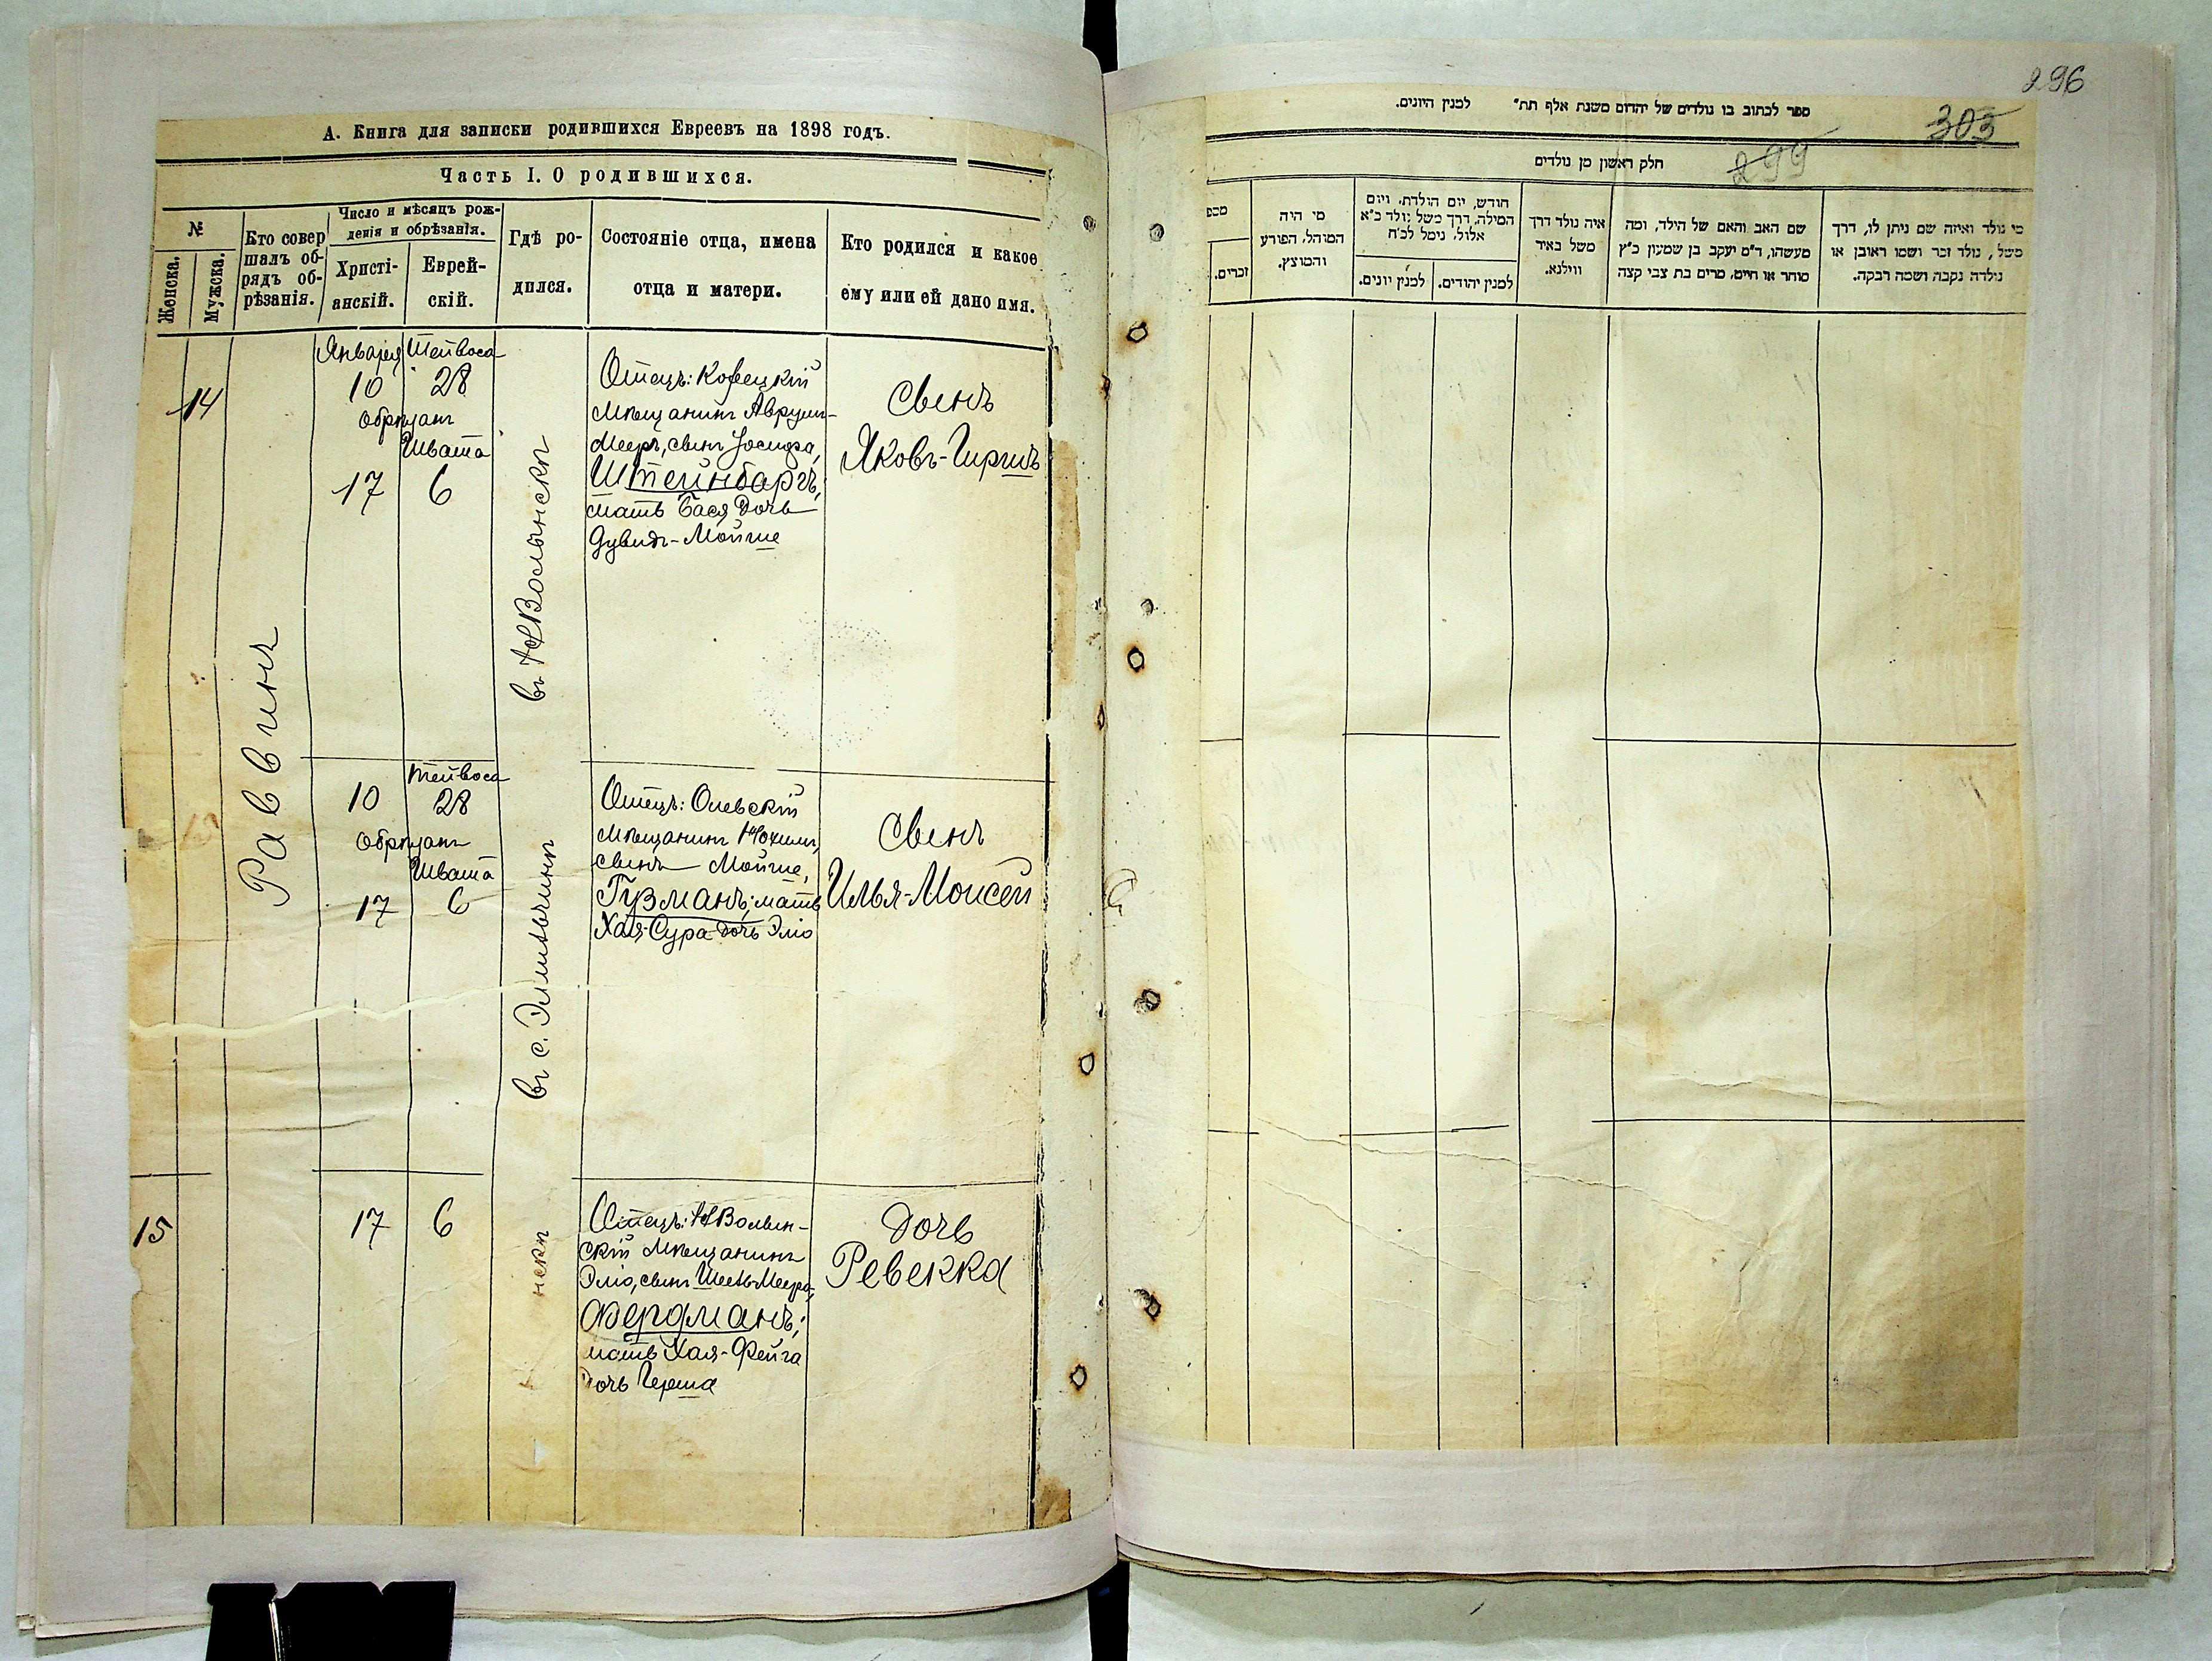 А. Книга для записки родившихся Евреевъ на 1898 годъ.
Часть I. О родившихся.
№
Женска.
Мужска.
Кто совер
шалъ об-
рядъ об-
рѣзанія.
Число и мѣсяцъ рож-
денія и обрѣзанія.
Христі-
анскій.
Еврей-
скій.
Гдѣ ро-
дился.
Состояніе отца, имена
отца и матери.
Кто родился и какое
ему или ей дано имя.
Раввинъ
14
Января
Тейвоса
10
28
Обрѣзанъ
Швата
17
6
въ НВолынскѣ
Отецъ: Корецкій
мѣщанинъ Аврумъ-
Мееръ, сынъ Іосифа,
Штейнбаргъ;
мать Бася дочь
Дувидъ-Мойше
сынъ
Яковъ-Гиршъ
Тейвоса
10
28
Обрѣзанъ
Швата
17
6
въ с. Эмильчинѣ
Отецъ: Олевскій
мѣщанинъ Нохимъ,
сынъ Мойше,
Гузманъ; мать
Хая-Сура дочь Эліо
сынъ
Илья-Моисей
15
17
6
нскѣ
Отецъ: НВолын-
скій мѣщанинъ
Эліо, сынъ Шеевъ-Меера,
Фердманъ;
мать Хая-Фейга
дочь Герша
дочь
Ревекка
296
303
299
ספר לכתוב בו נולדים של יהדום משנת אלף תת״ למנין היונים.
חלק ראשון מן נולדים
מספ
זכרים.
מי היה
המוהל, הפורע
והמוצץ.
חודש, יום הולדת, ויום
המילה, דרך משל נולד כ״א
אלול, נימל לכ״ח
למנין יונים.
למנין יהודים.
איה נולד דרך
משל באיד
ווילנא.
שם האב והאם של הילד, ומה
מעשהו, ד״מ יעקב בן שמעון כ״ץ
סוחר או חייט, מרים בת צבי קצה
מי נולד ואיזה שם ניתן לו, דרך
משל, נולד זכר ושמו ראובן או
נולדה נקבה ושמה רבקה.